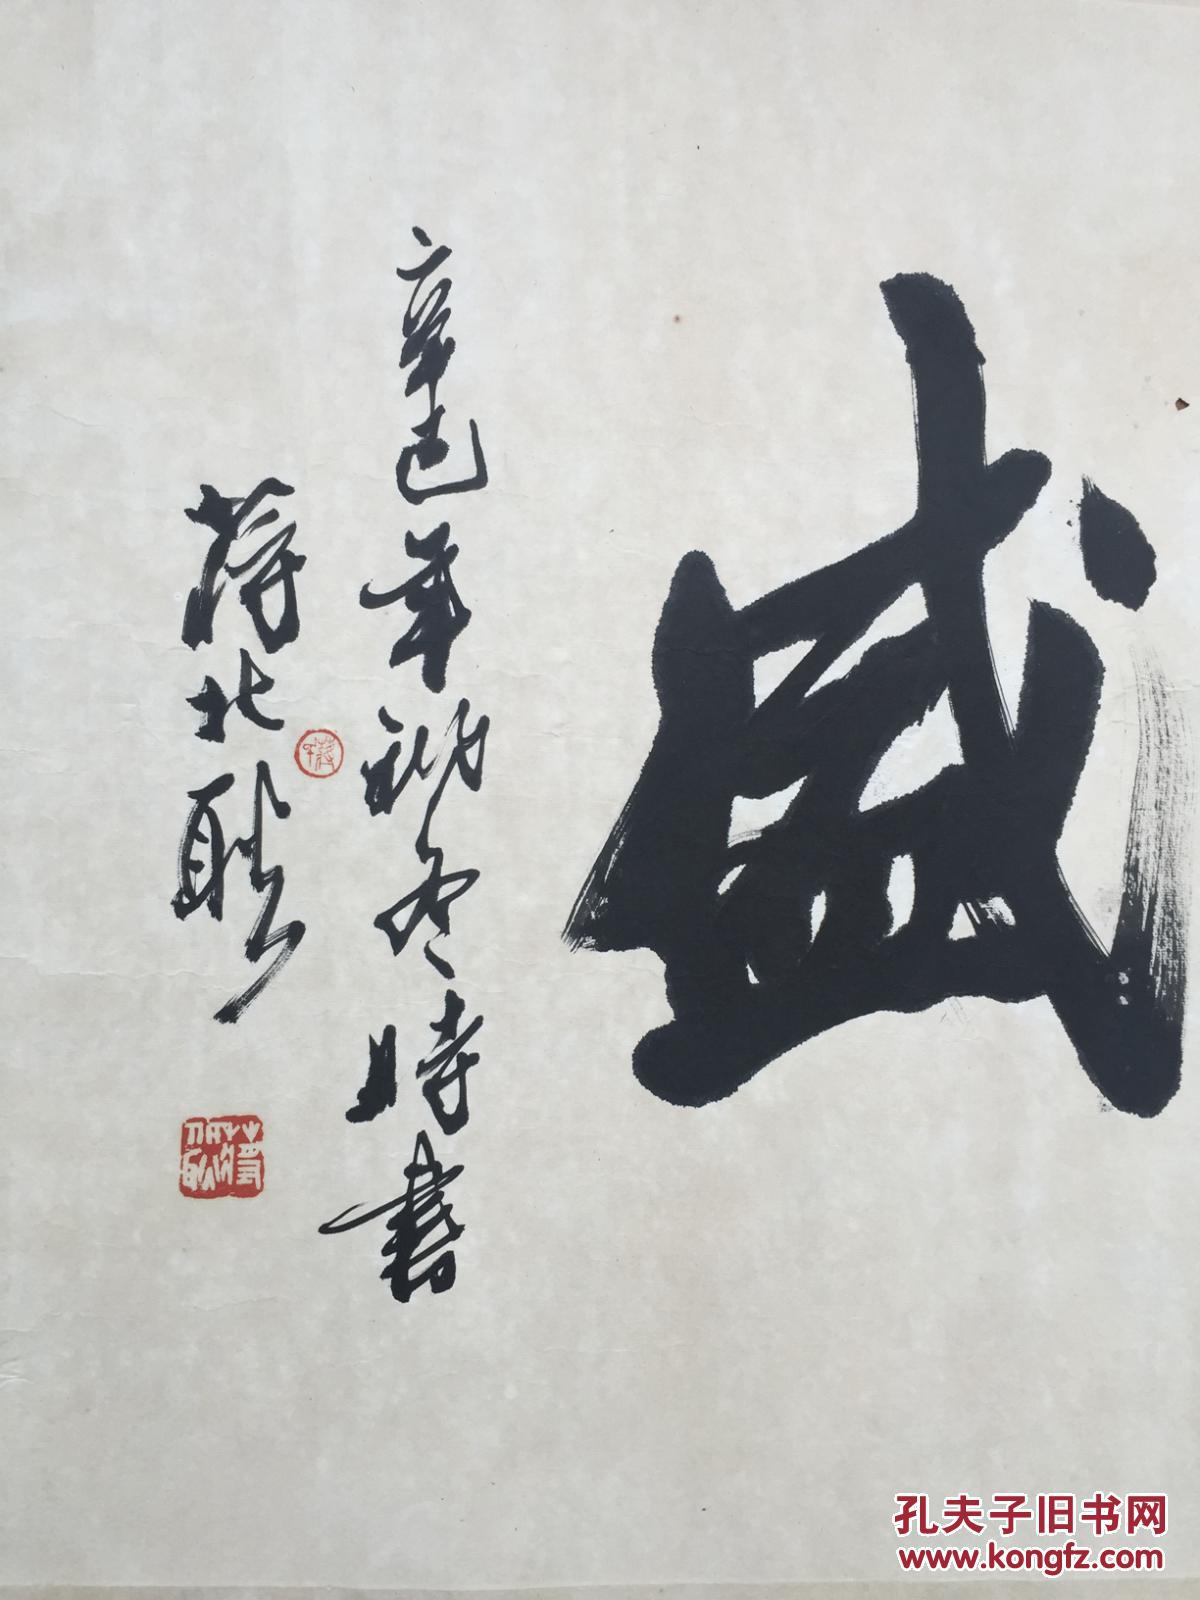 盛
辛巳年初冬時書
蒋北耿
孔夫子旧书网
www.kongfz.com